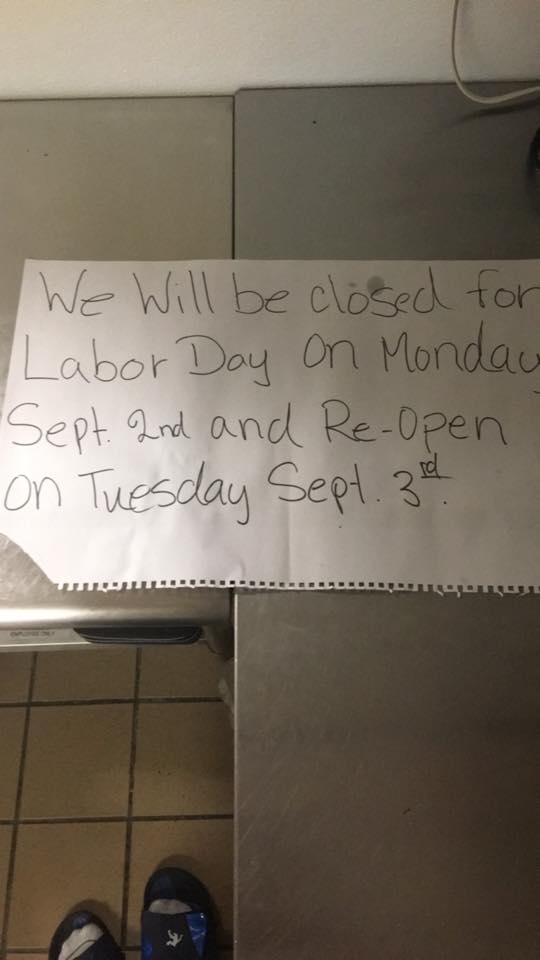 We Will be closed for
Labor Day on Monday
Sept. 2nd and Re-Open
on Tuesday Sept. 3rd.
EMPLOYEE ONLY